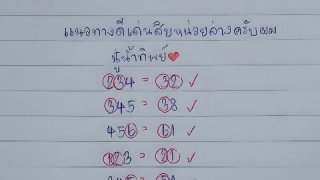 แนวทางดีเด่นสิบหน่วยล่างครับผม
ปู่น้ำทิพย์
234 = 32 ✓
345 = 38 ✓
456 = 61 ✓
123 = 21 ✓